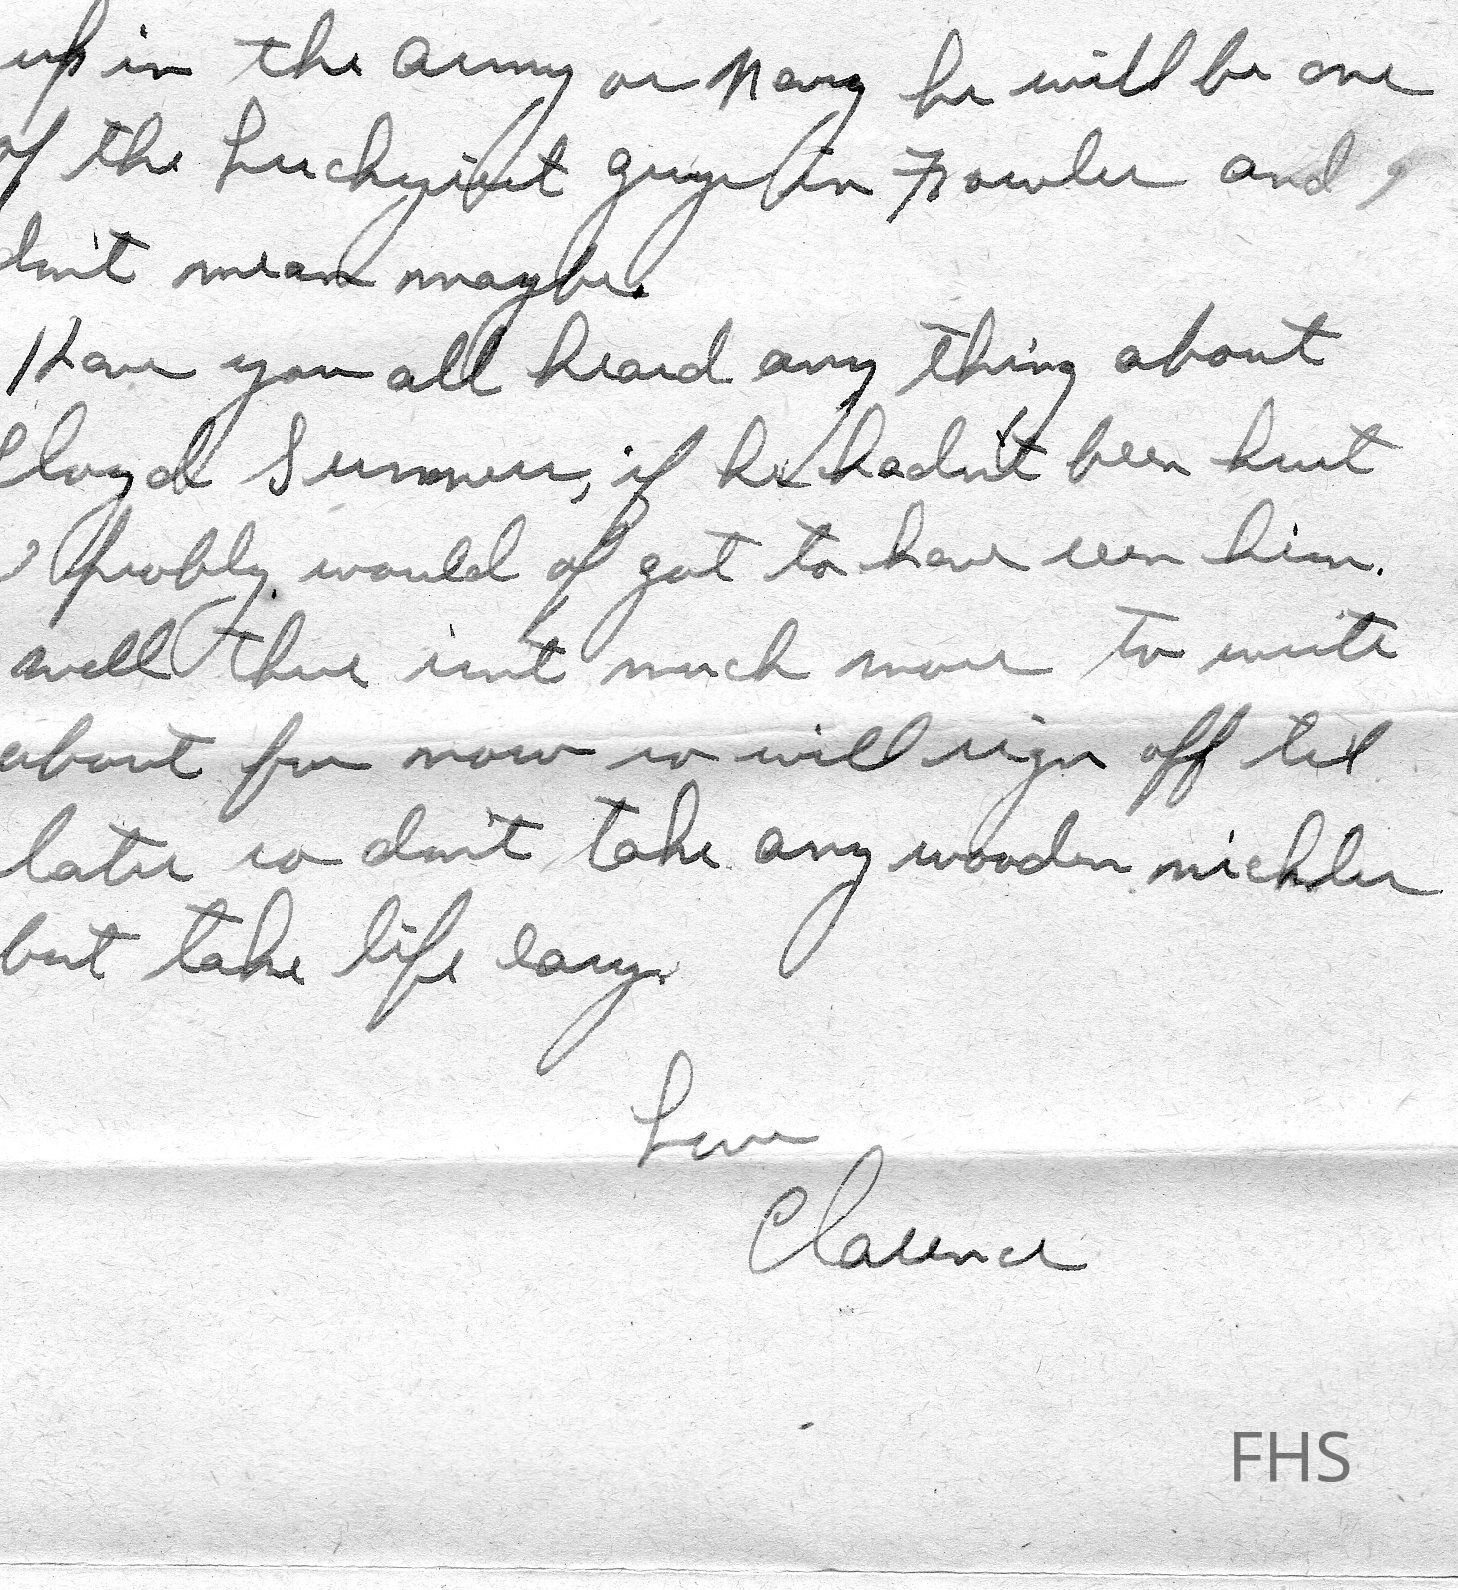 up in the army or Navy he will be one
of the Luckyiest guys in Fowler and I
don't mean maybe.
Have you all heard any thing about
Lloyd Sumners, if he hadn't been hurt
I probly would of got to have seen him.
well there isnt much more to write
about for now so will sign off til
later so don't take any wooden nickles
but take life easy.
Love
Clarence
FHS